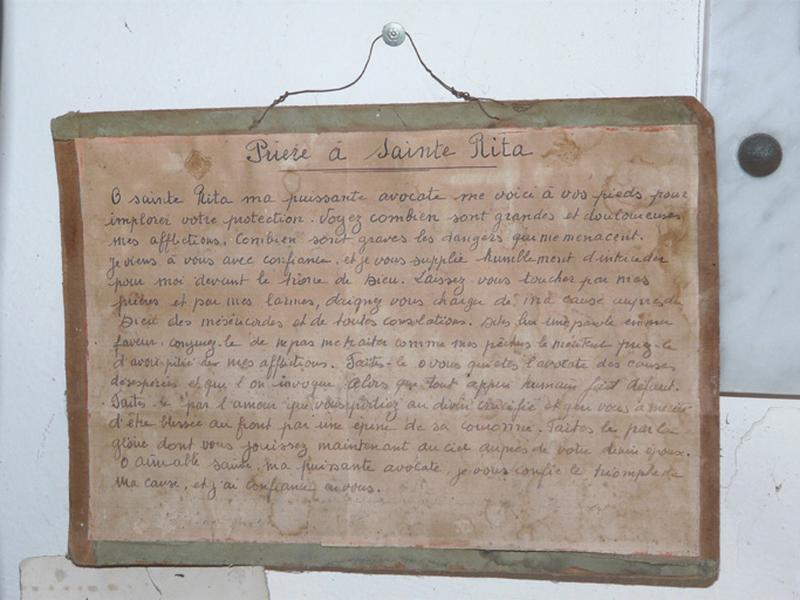 Priere à Sainte Rita
O sainte Rita ma puissante avocate me voici à vos pieds pour
implorer votre protection. Voyez combien sont grandes et douloureuses
mes afflictions, Combien sont graves les dangers qui me menacent.
Je viens à vous avec confiance, et je vous supplie humblement d'intercéder
pour moi devant le trône de Dieu. Laissez vous toucher par mes
prières et par mes larmes, daignez vous charger de ma cause auprès du
Dieu des miséricordes et de toutes consolations. Dites lui une parole en ma
faveur, conjurez-le de ne pas me traiter comme mes péchés le méritent priez-le
d'avoir pitié de mes afflictions. Faites-le o vous qui êtes l'avocate des causes
désespérées et que l'on invoque alors que tout appui humain fait défaut.
Faites-le par l'amour que vous portiez au divin crucifié et qui vous a mérité
d'être blessée au front par une épine de sa couronne. Faites le par la
gloire dont vous jouissez maintenant au ciel auprès de votre divin époux.
O aimable sainte, ma puissante avocate, je vous confie le triomphe de
ma cause, et j'ai confiance en vous.